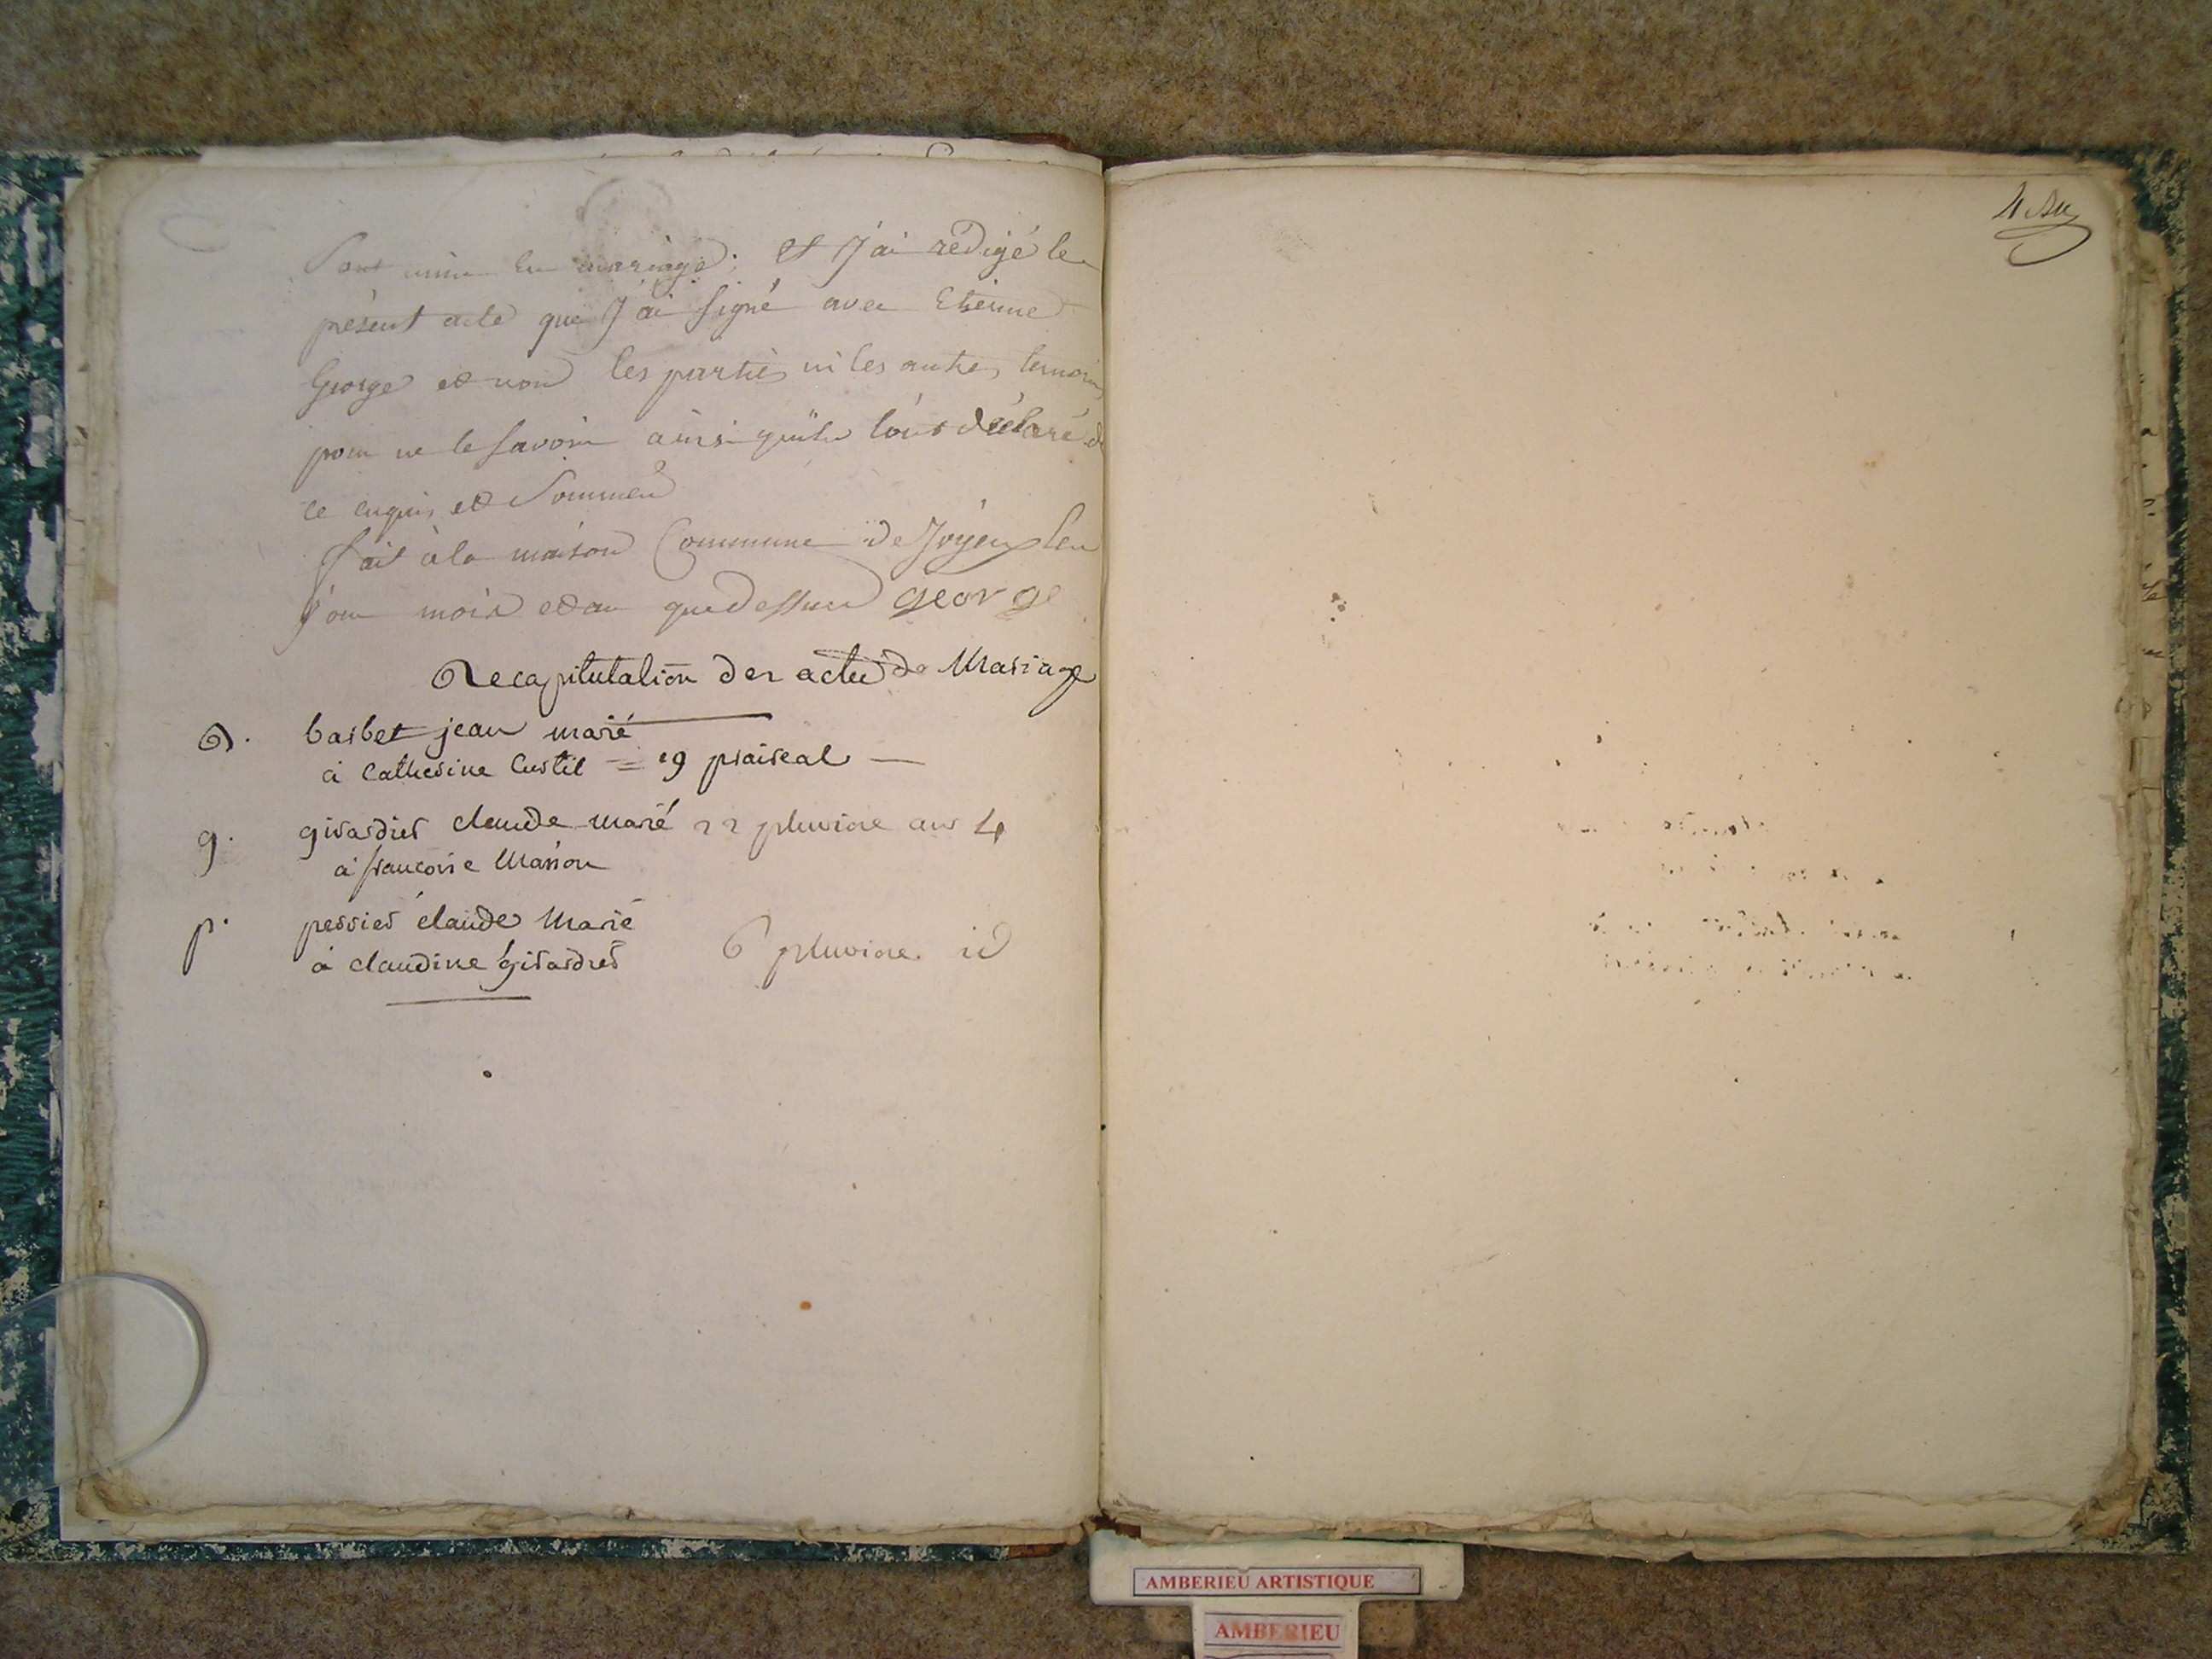 Sont unis en mariage; et J'ai rédigé le
présent acte que J'ai signé avec Etienne
George et non les parties ni les autres temoins
pour ne le savoir ainsi qu'ils l'ont déclaré de
ce enquis et Sommés
fait à la maison Commune de Joyeux les
jour mois et an que dessus george
Recapitulation des actes de Mariage
B. barbet jean marié
à Catherine Curtil = 19 praireal —
g. girardier claude marié 22 pluviose an 4
à francoise Marion
p. perrier claude Marié
à claudine girardier 6 pluviose id
4
AMBERIEU ARTISTIQUE
AMBERIEU